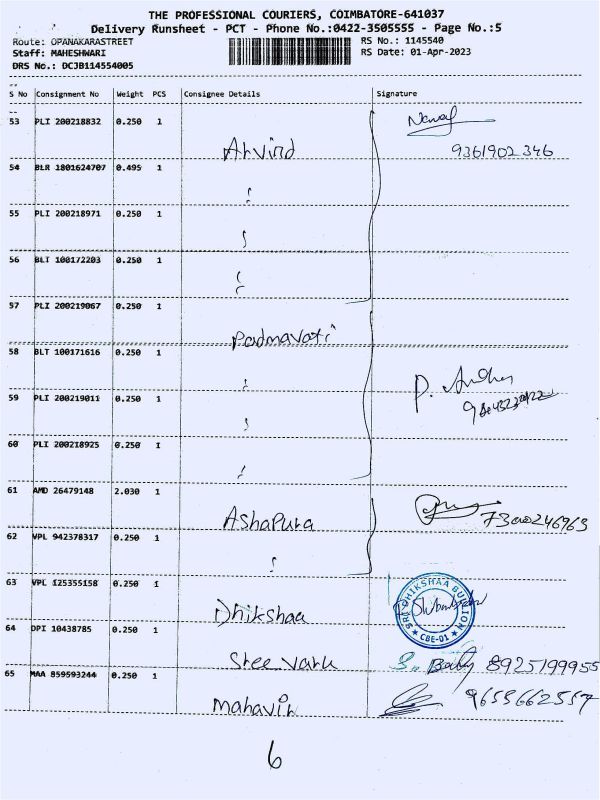 THE PROFESSIONAL COURIERS, COIMBATORE-641037
Delivery Runsheet - PCT - Phone No.:0422-3505555 - Page No.:5
Route: OPANAKARASTREET
RS No.: 1145540
Staff: MAHESHWARI
RS Date: 01-Apr-2023
DRS No.: DCJB114554005
S No Consignment No Weight PCS Consignee Details Signature
53 PLI 200218832 0.250 1
Arvind
9361902346
54 BLR 1801624707 0.495 1
55 PLI 200218971 0.250 1
56 BLT 100172203 0.250 1
57 PLI 200219067 0.250 1
Padmavati
58 BLT 100171616 0.250 1
59 PLI 200219011 0.250 1
60 PLI 200218925 0.250 1
61 AMD 26479148 2.030 1
Ashapura 7300246963
62 VPL 942378317 0.250 1
63 VPL 125355158 0.250 1
Dhikshaa
SRI DHIKSHAA BULLION
CBE-01
64 DPI 10438785 0.250 1
Sree 8925199955
65 MAA 859593244 0.250 1
Mahavir 9655662557
6